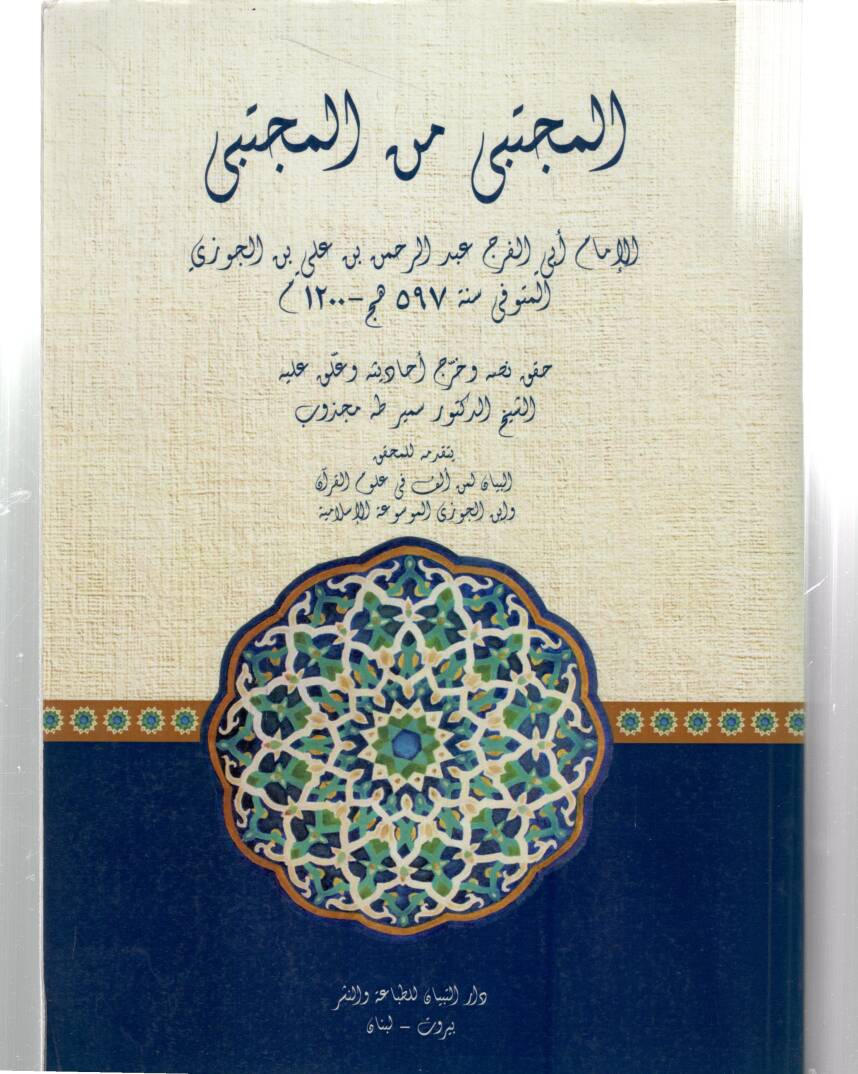 المجتبى من المجتبى
الإمام أبي الفرج عبد الرحمن بن علي بن الجوزي
المتوفى سنة ٥٩٧ هج - ١٢٠٠ م
حقق نصه وخرّج أحاديثه وعلّق عليه
الشيخ الدكتور سمير طه مجذوب
يتقدمه للمحقق
البيان لمن ألف في علوم القرآن
وابن الجوزي الموسوعة الإسلامية
دار التبيان للطباعة والنشر
بيروت - لبنان